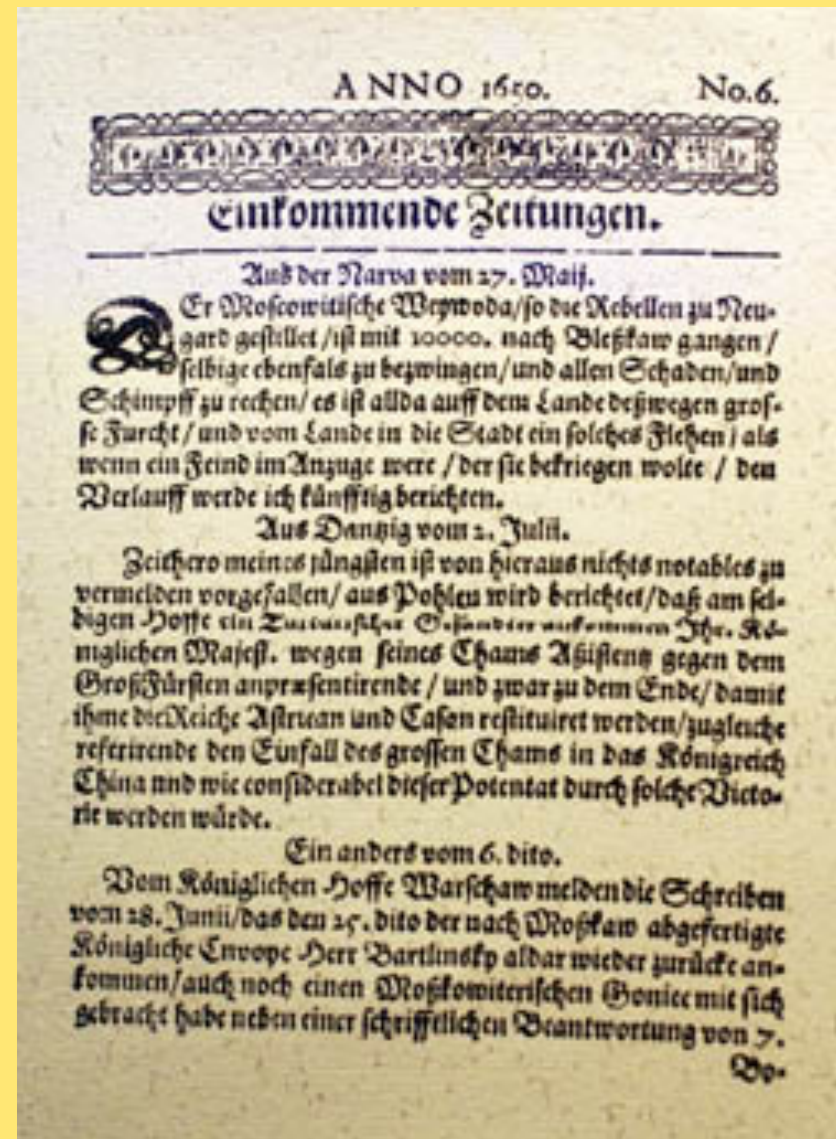 ANNO 1650. No.6.
Einkommende Zeitungen.
Aus der Narva vom 27. Maij.
DEr Moscowitische Weywoda/so die Rebellen zu Neu-
gard gestillet/ist mit 10000. nach Pleßkaw gangen/
selbige ebenfals zu bezwingen/und allen Schaden/und
Schimpff zu rechen/es ist allda auff dem Lande deßwegen gros-
se Furcht/und vom Lande in die Stadt ein solches Flehen/als
wenn ein Feind im Anzuge were/der sie bekriegen wolte/den
Verlauff werde ich künfftig berichten.
Aus Dantzig vom 2. Julii.
Zeithero meines jüngsten ist von hieraus nichts notables zu
vermelden vorgefallen/aus Pohlen wird berichtet/daß am sel-
bigen Hoffe ein Tartarischer Gesandter ankommen Ihr. Kö-
niglichen Majest. wegen seines Chams Aßistentz gegen dem
GroßFürsten anpræsentirende/und zwar zu dem Ende/damit
ihme die Reiche Astrican und Casan restituiret werden/zugleiche
referirende den Einfall des grossen Chams in das Königreich
China und wie considerabel dieser Potentat durch solche Victo-
rie werden würde.
Ein anders vom 6. dito.
Vom Königlichen Hoffe Warschaw melden die Schreiben
vom 28. Junii/das den 25. dito der nach Moßkaw abgefertigte
Königliche Envoye Herr Bartlinsky aldar wieder zurücke an-
kommen/auch noch einen Moßkowiterischen Goniec mit sich
gebracht habe neben einer schrifftlichen Beantwortung von 7.
Bo-